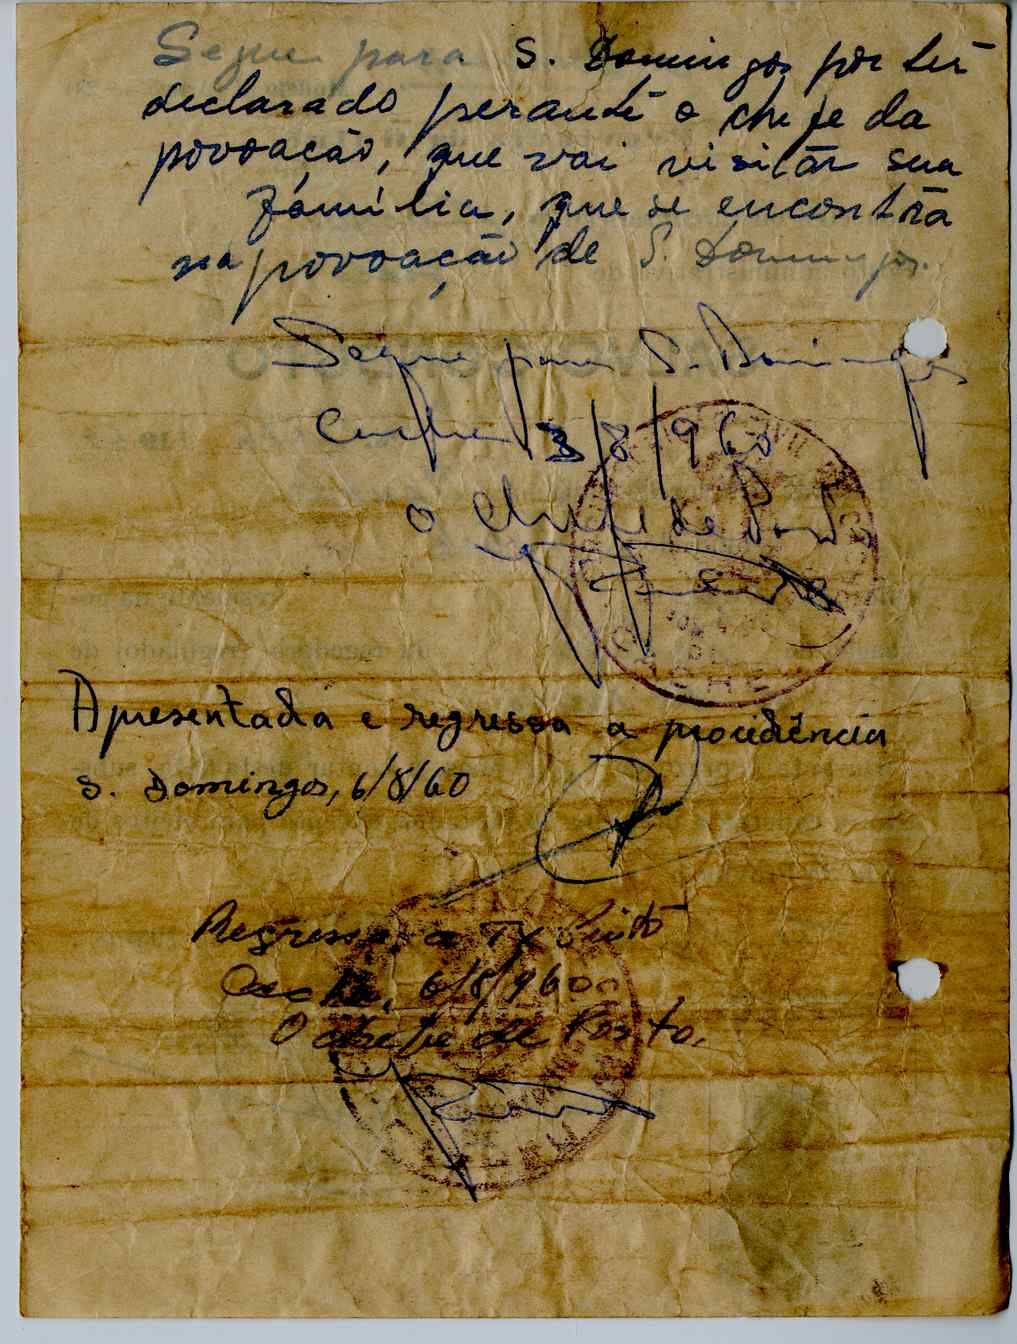 Segue para S. Domingos por ter
declarado perante o chefe da
povoação, que vai visitar sua
família, que se encontra
na povoação de S. Domingos.
Segue para S. Domingos
Cacheu 3/8/960
O Chefe de Posto
CACHEU
Apresentada e regressa a procidência
S. Domingos, 6/8/60
Regressa a Tx Pinto
Cacheu, 6/8/960
O chefe de Posto,
CACHEU